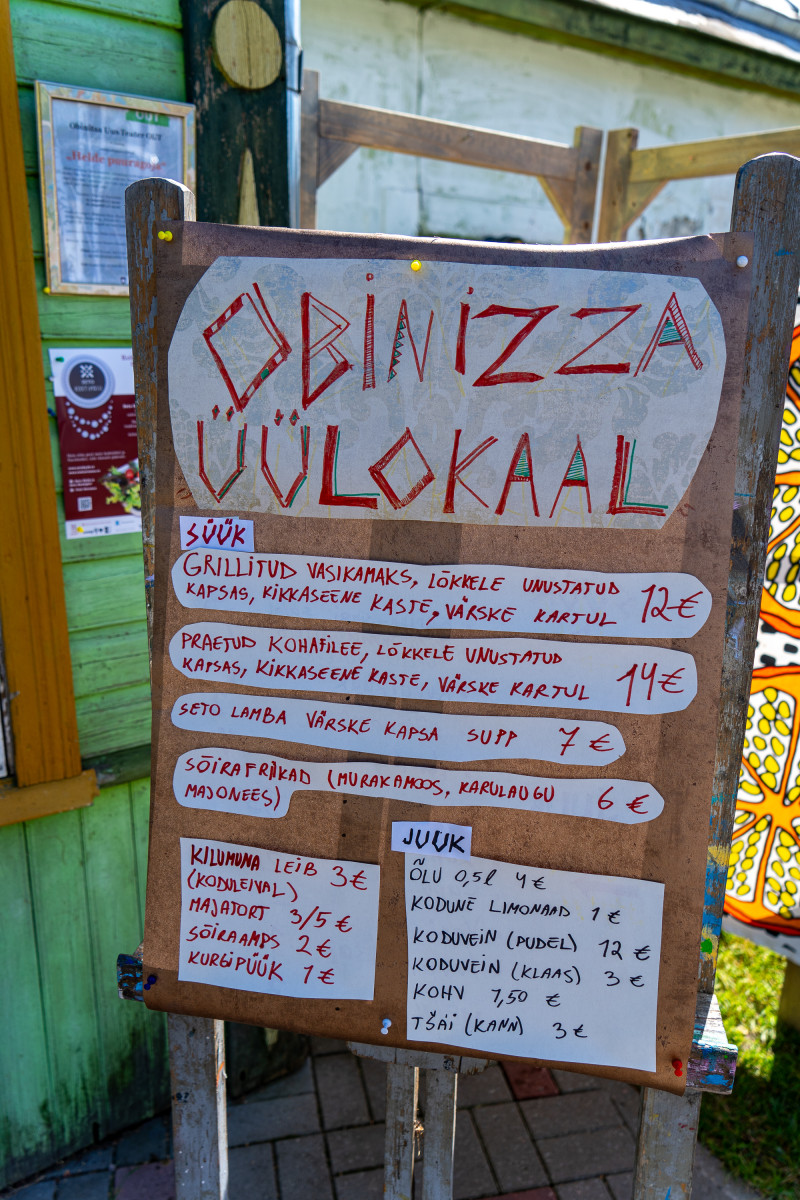 Obinitsa Uus Teater GUT
ÖBINIZZA
ÜÜLOKAAL
SÜÜK
GRILLITUD VASIKAMAKS, LÕKKELE UNUSTATUD
KAPSAS, KIKKASEENE KASTE, VÄRSKE KARTUL 12€
PRAETUD KOHAFILEE, LÕKKELE UNUSTATUD
KAPSAS, KIKKASEENE KASTE, VÄRSKE KARTUL 14€
SETO LAMBA VÄRSKE KAPSA SUPP 7 €
SÕIRAFRIIKAD (MURAKAMOOS, KARULAUGU
MAJONEES) 6 €
KILUMUNA LEIB 3€
(KODULEIVAL)
MAJATORT 3/5 €
SÕIRAAMPS 2 €
KURGIPÜÜK 1 €
JUUK
ÕLU 0,5l 4 €
KODUNE LIMONAAD 1 €
KODUVEIN (PUDEL) 12 €
KODUVEIN (KLAAS) 3 €
KOHV 1,50 €
TŠÄI (KANN) 3 €